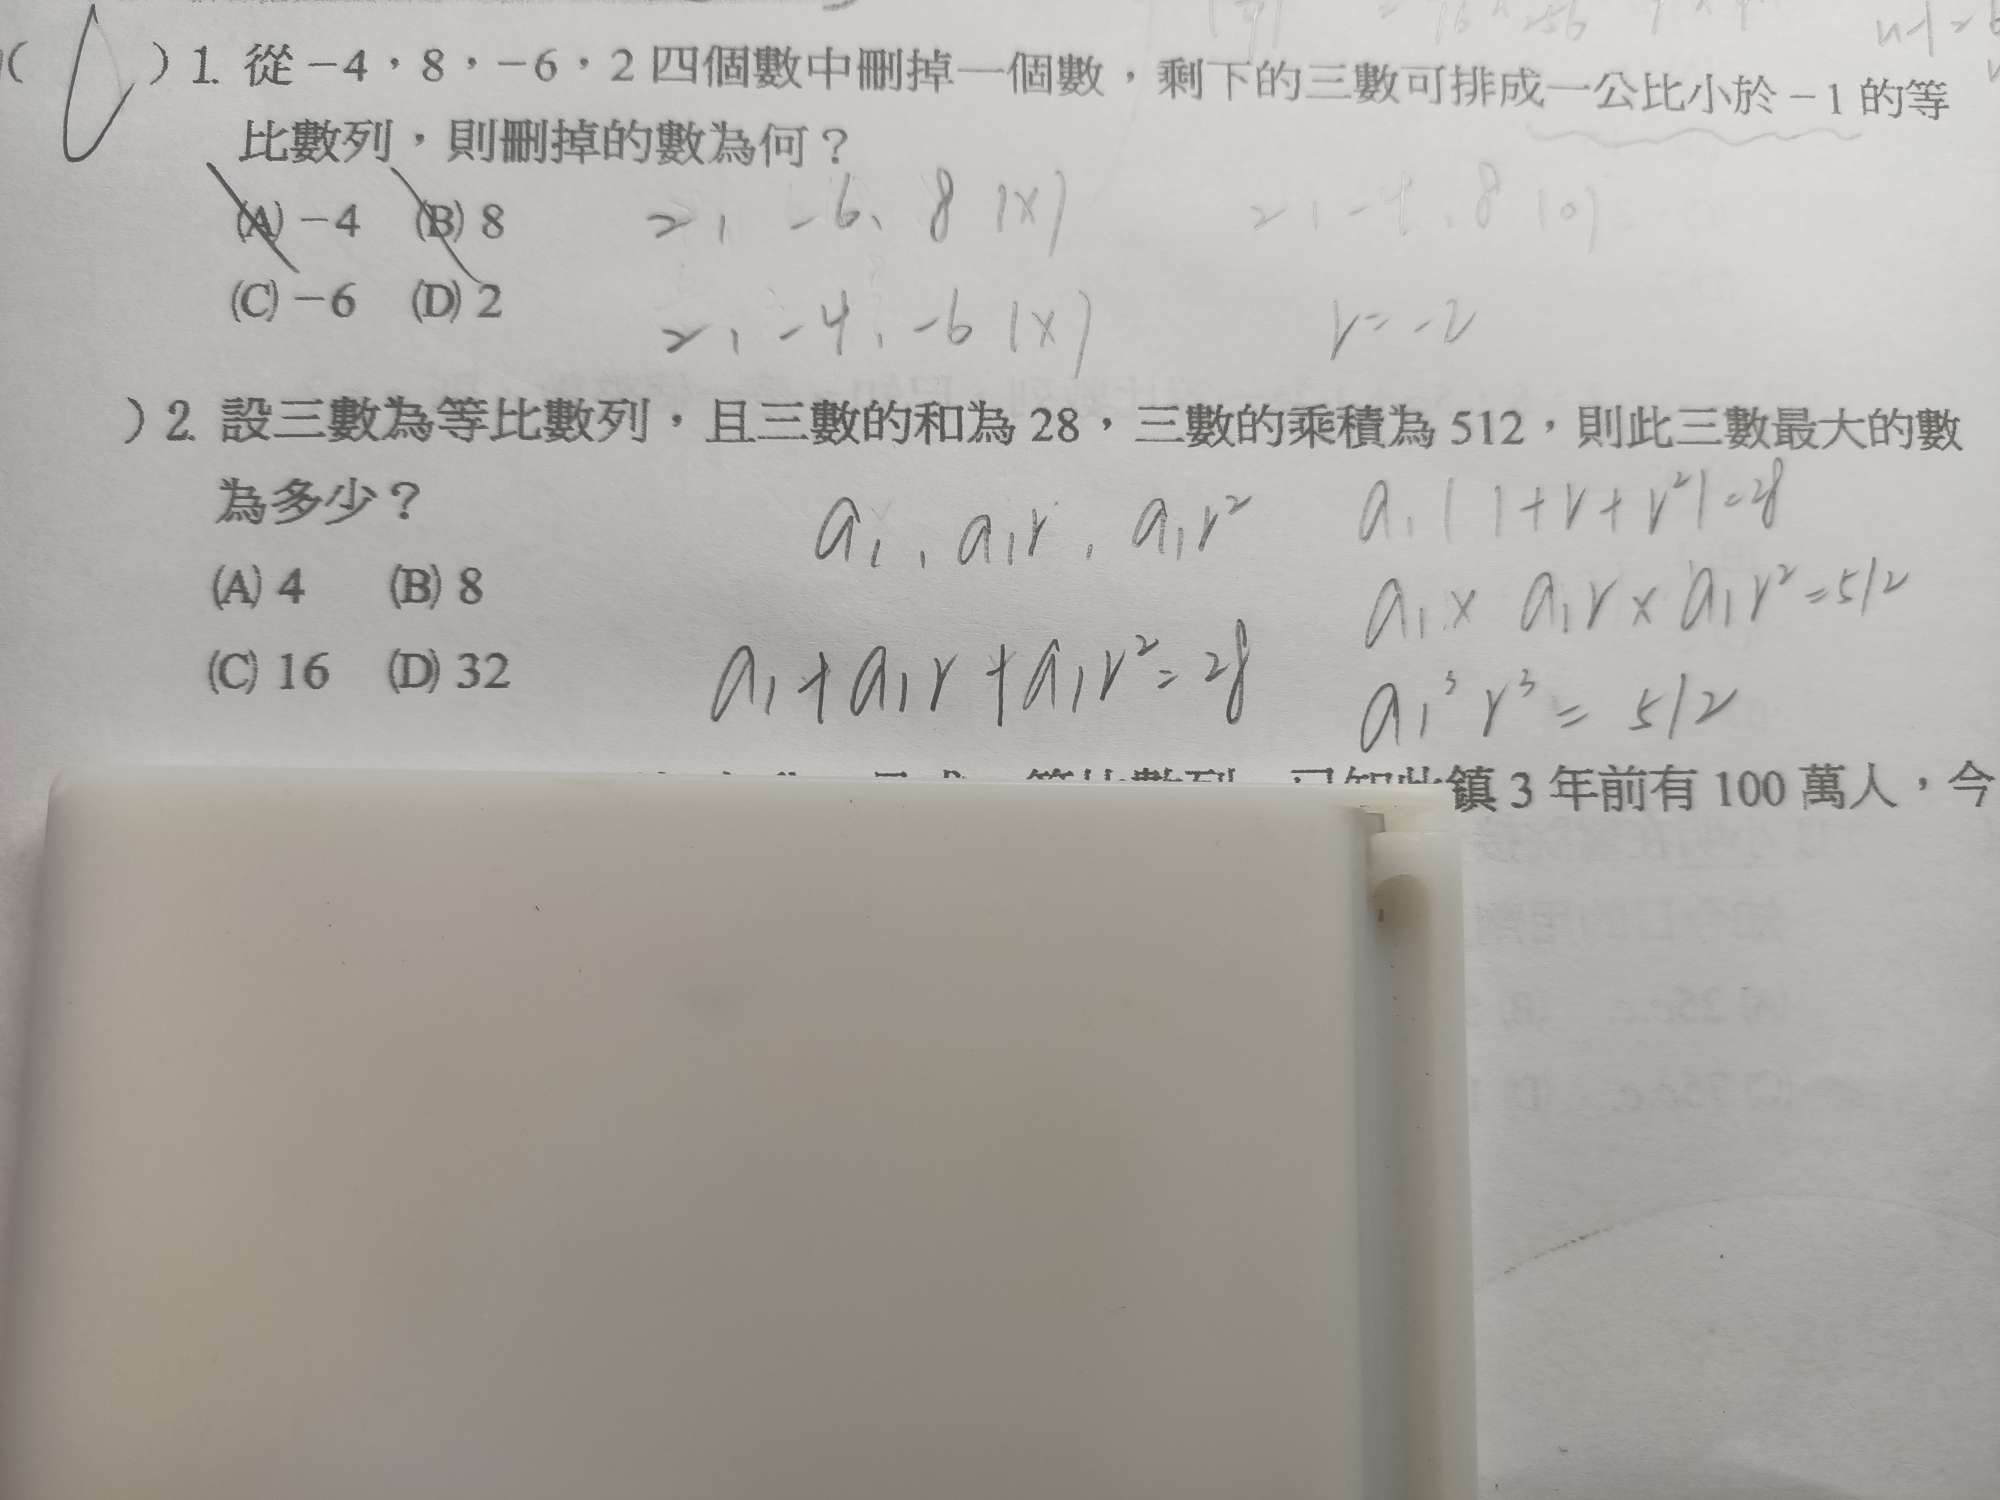 ( ) 1. 從 −4，8，−6，2 四個數中刪掉一個數，剩下的三數可排成一公比小於 −1 的等
比數列，則刪掉的數為何？
(A) −4 (B) 8
2, -6, 8 (×)
2, -4, 8 (o)
(C) −6 (D) 2
2, -4, -6 (×)
r = -2
) 2. 設三數為等比數列，且三數的和為 28，三數的乘積為 512，則此三數最大的數
為多少？
a₁, a₁r, a₁r²
a₁(1+r+r²)=28
(A) 4 (B) 8
a₁ × a₁r × a₁r² = 512
(C) 16 (D) 32
a₁+a₁r+a₁r²=28
a₁³r³ = 512
等比數列 已知此鎮 3 年前有 100 萬人，今